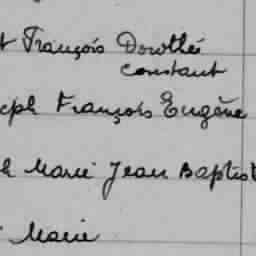 t François Dorothé
constant
eph François Eugène
h Marie Jean Baptist
Marie